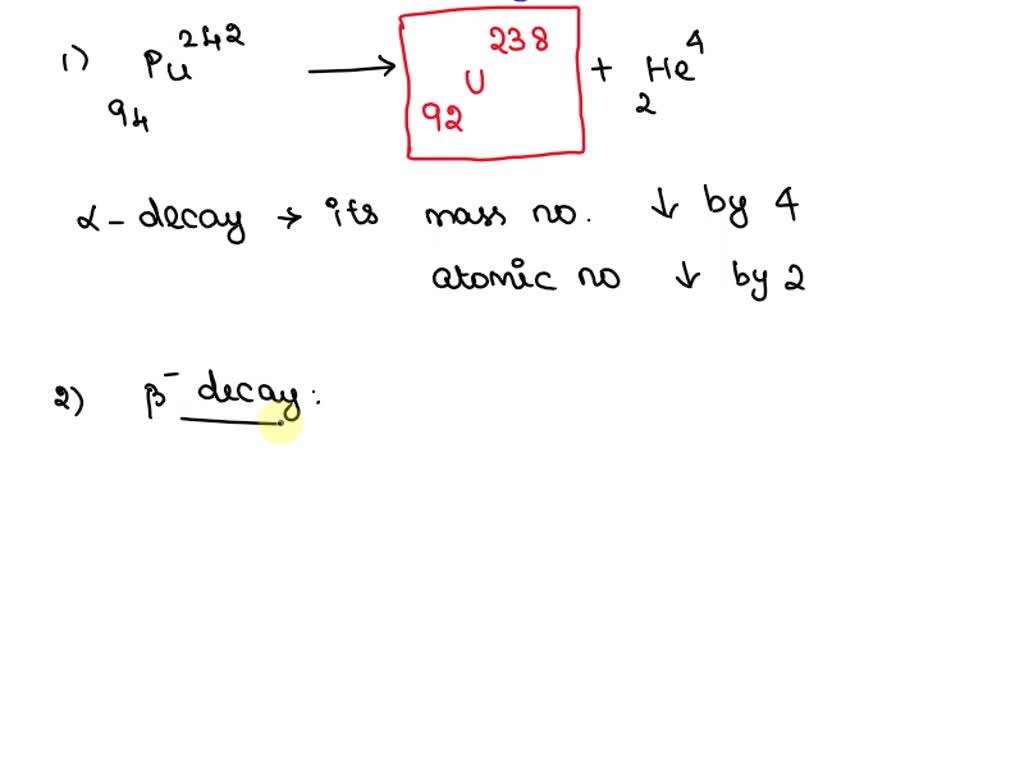 1) ₉₄Pu²⁴² → ₉₂U²³⁸ + ₂He⁴
α - decay → its mass no. ↓ by 4
atomic no ↓ by 2
2) β⁻ decay :